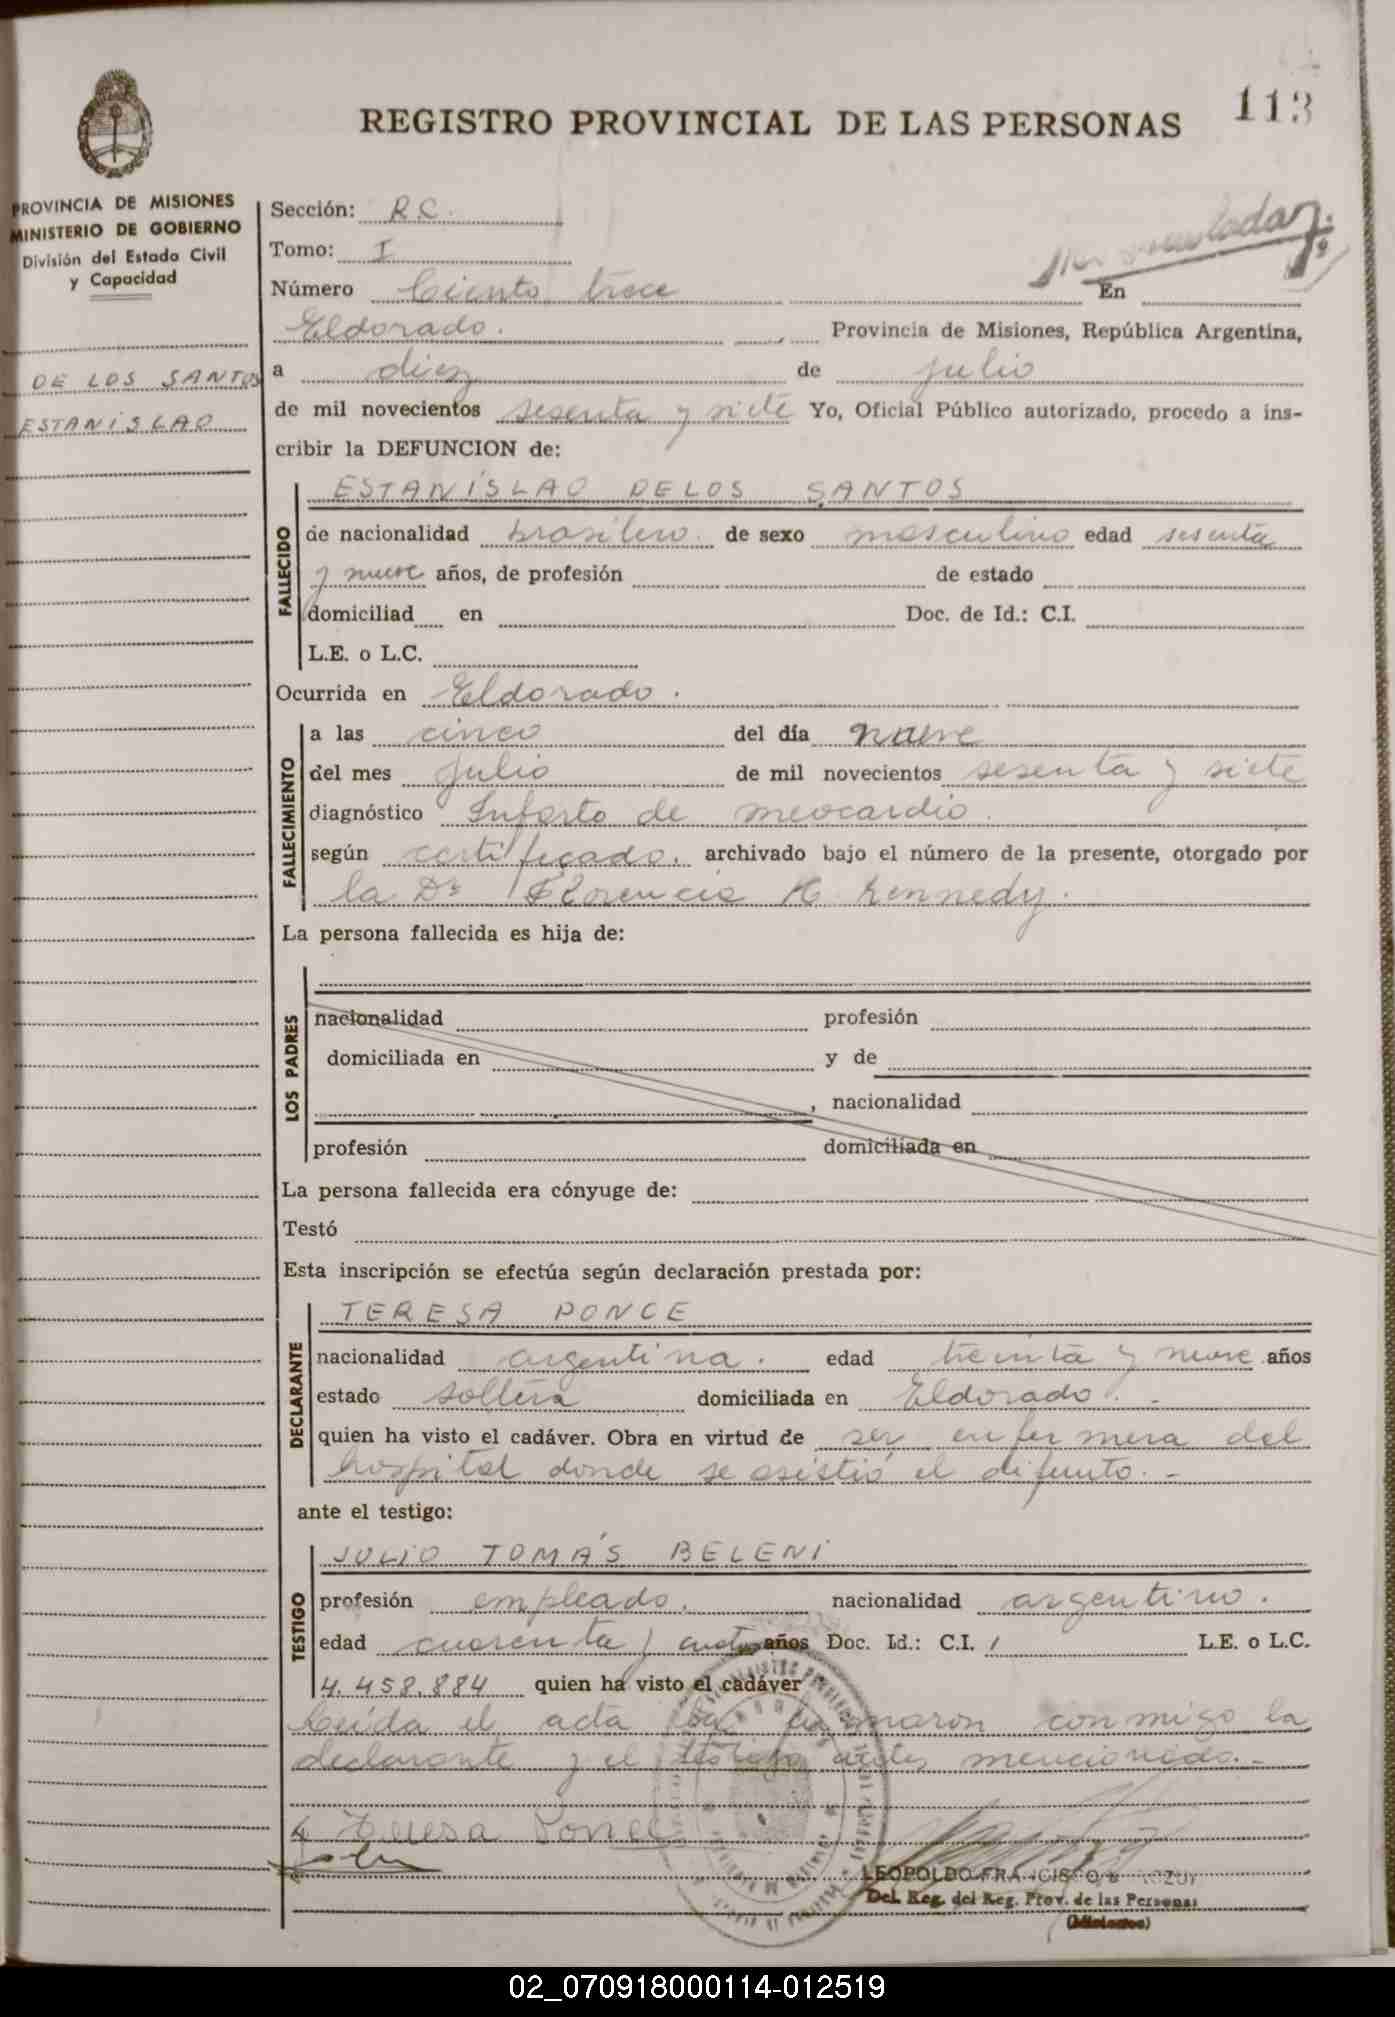 113
REGISTRO PROVINCIAL DE LAS PERSONAS
PROVINCIA DE MISIONES
MINISTERIO DE GOBIERNO
División del Estado Civil
y Capacidad
DE LOS SANTOS
ESTANÍSLAO
Sección: R C.
Tomo: I
Número Ciento trece En
Eldorado. Provincia de Misiones, República Argentina,
a diez de julio
de mil novecientos sesenta y siete Yo, Oficial Público autorizado, procedo a ins-
cribir la DEFUNCION de:
FALLECIDO
ESTANÍSLAO DE LOS SANTOS
de nacionalidad brasilero. de sexo masculino edad sesenta
y nueve años, de profesión de estado
domiciliad en Doc. de Id.: C.I.
L.E. o L.C.
Ocurrida en Eldorado.
FALLECIMIENTO
a las cinco del día nueve
del mes julio de mil novecientos sesenta y siete
diagnóstico Infarto de meocardio.
según certificado, archivado bajo el número de la presente, otorgado por
la Dra Florencia H. Kennedy.
La persona fallecida es hija de:
LOS PADRES
nacionalidad profesión
domiciliada en y de
, nacionalidad
profesión domiciliada en
La persona fallecida era cónyuge de:
Testó
Esta inscripción se efectúa según declaración prestada por:
DECLARANTE
TERESA PONCE
nacionalidad argentina. edad treinta y nueve años
estado soltera domiciliada en Eldorado. -
quien ha visto el cadáver. Obra en virtud de ser enfermera del
hospital donde se asistió el difunto. -
ante el testigo:
TESTIGO
JULIO TOMÁS BELENI
profesión empleado. nacionalidad argentino.
edad cuarenta y cuatro años Doc. Id.: C.I. / L.E. o L.C.
4.458.884 quien ha visto el cadáver
Leída el acta la firmaron conmigo la
declarante y el testigo antes mencionado. -
Teresa Ponce
LEOPOLDO FRANCISCO
Del. Reg. del Reg. Prov. de las Personas
(Misiones)
02_070918000114-012519